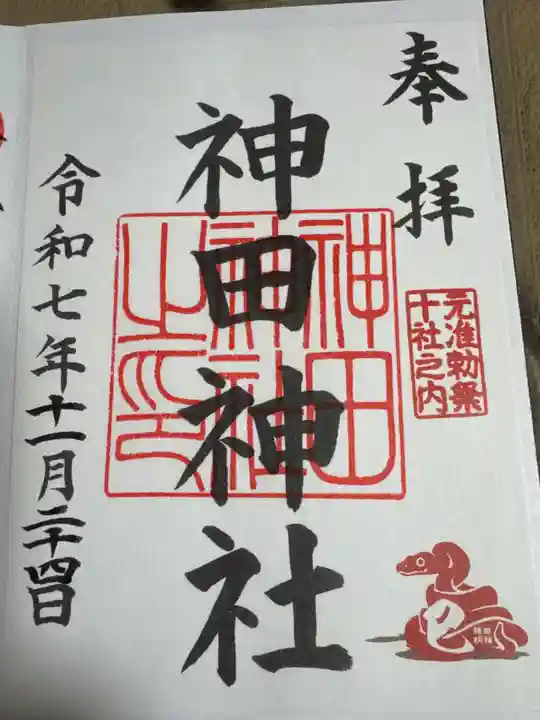 奉拝
元准勅祭
十社之内
神田神社
神田
神社
之印
巳
令和七年十一月二十四日